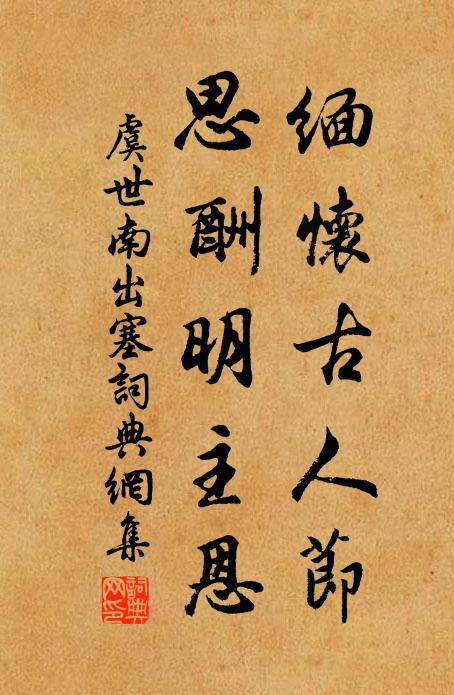 缅懷古人節
思酬明主恩
虞世南出塞詞典網集
詞典网印